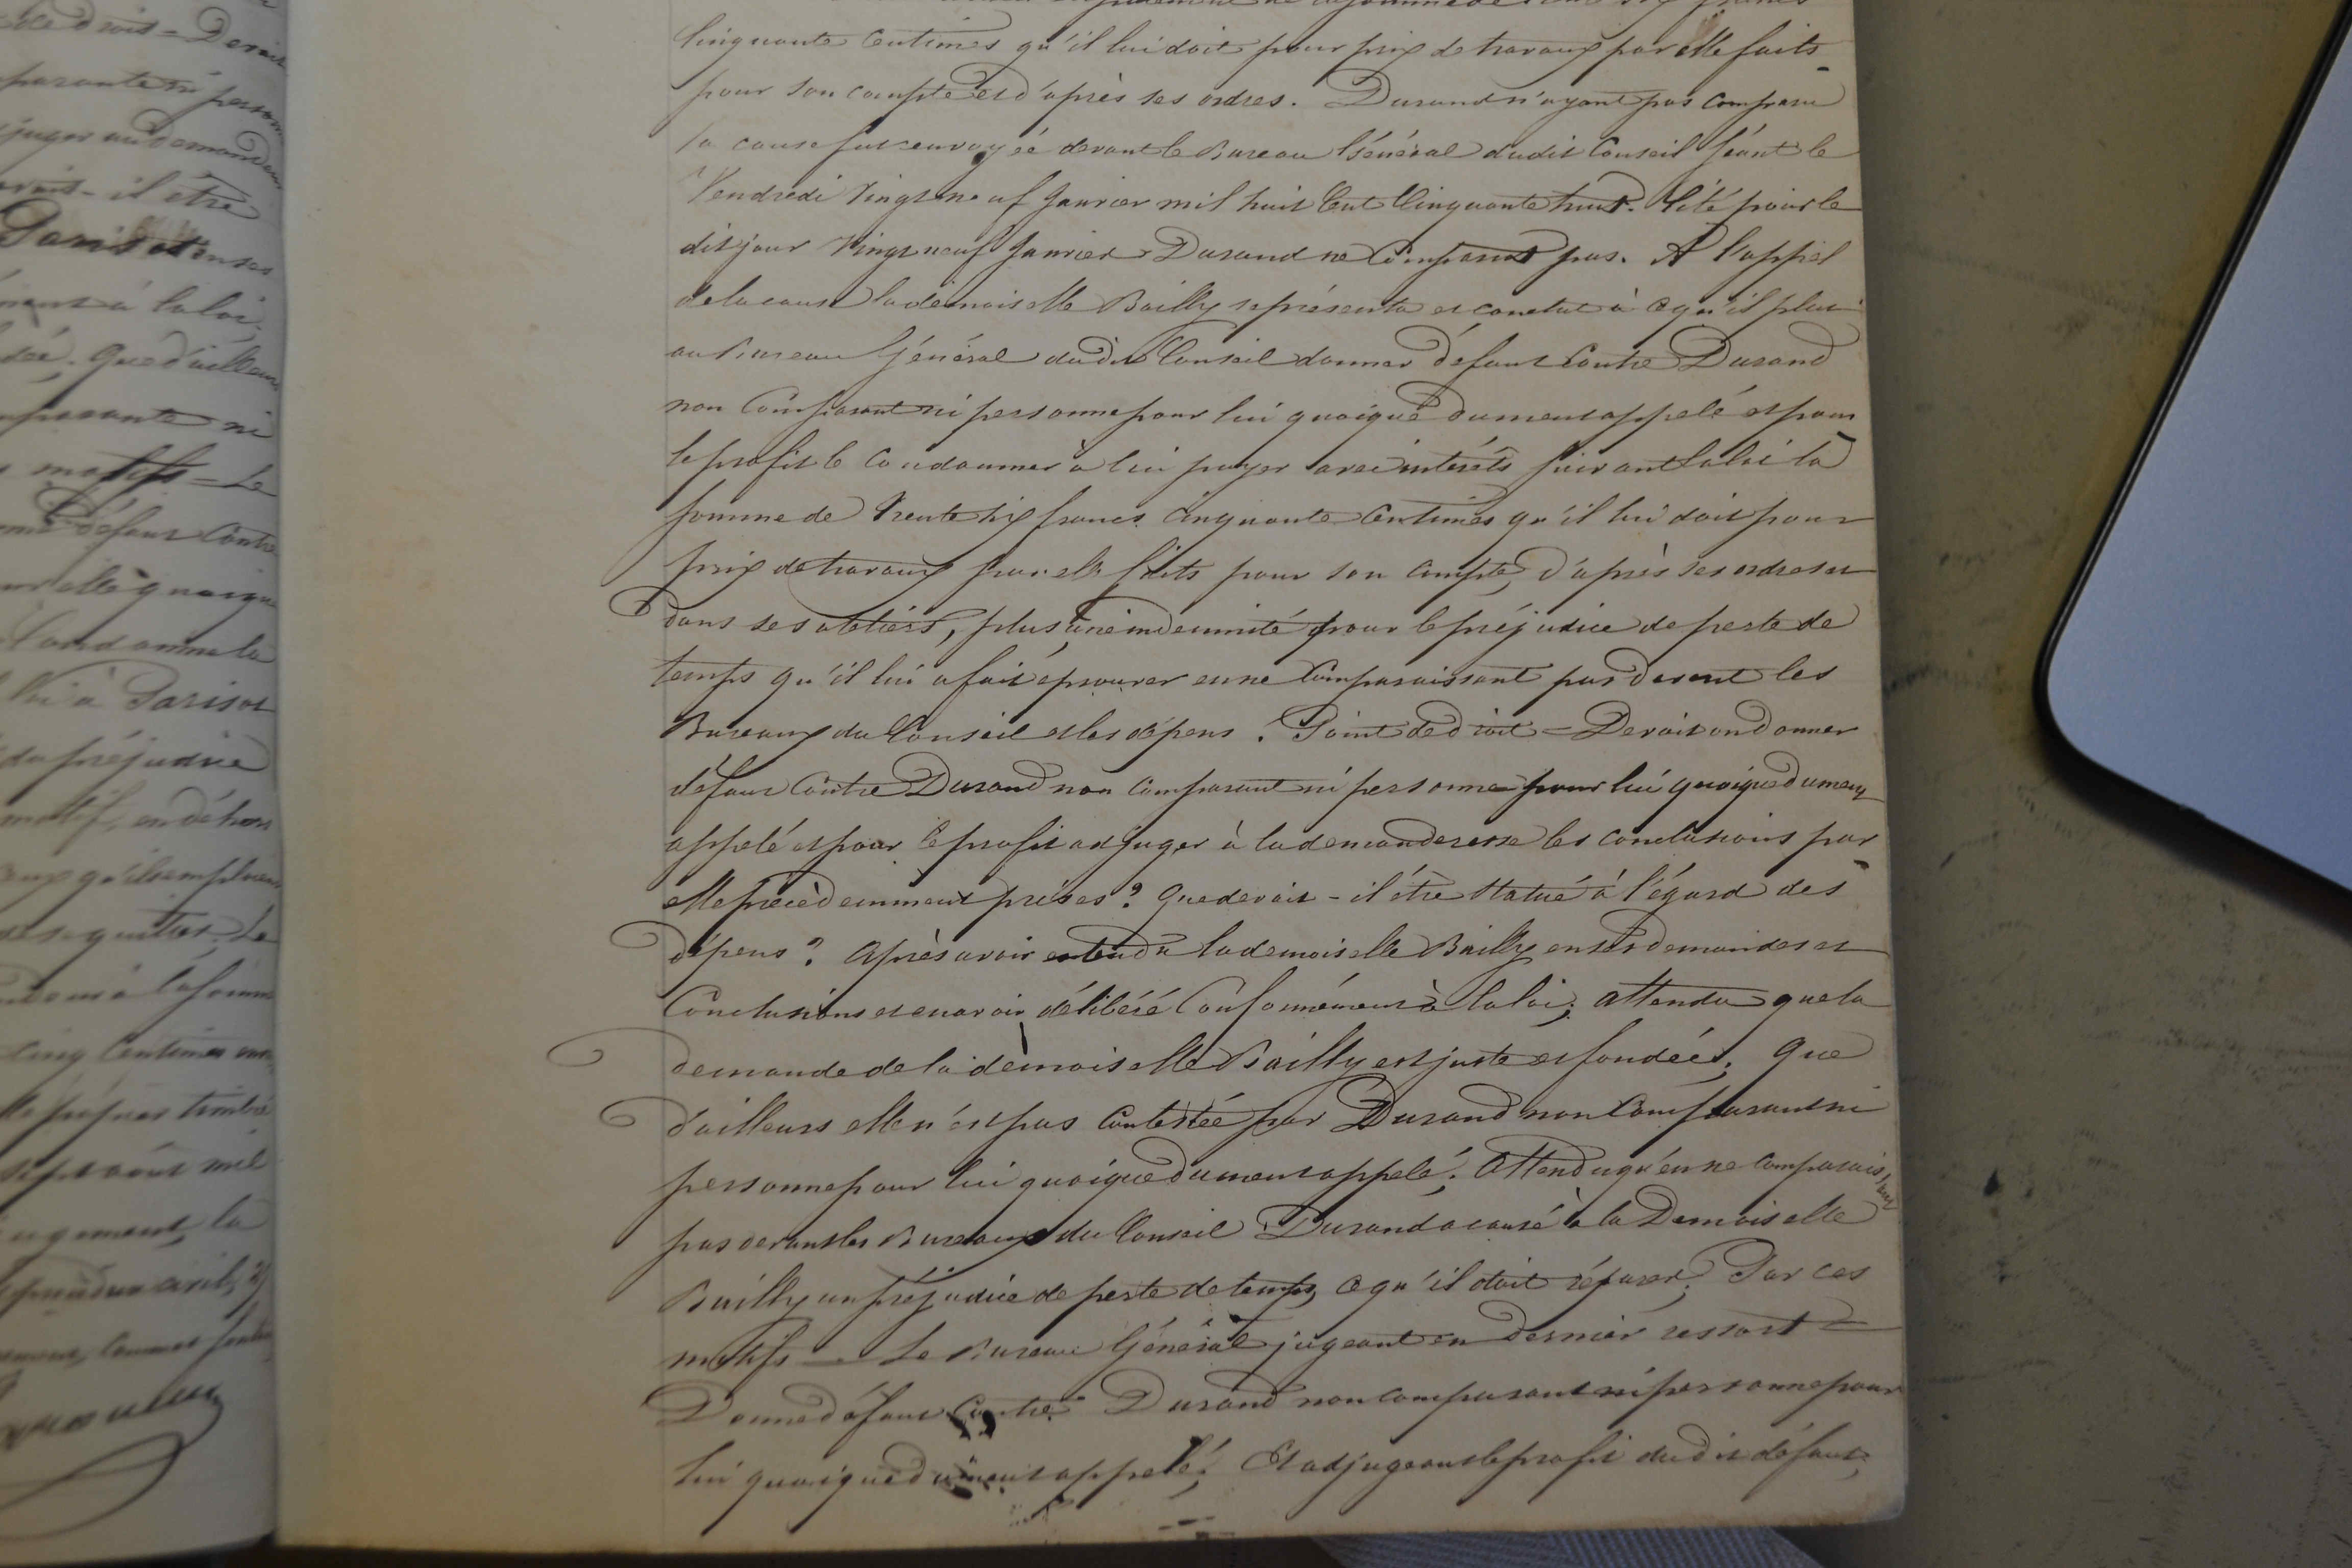 ble droit - Devait
juger au demandeur
devait-il être
Parisot en ses
à la loi,
Que d'ailleurs
comparante ni
motifs - Le
défaut contre
elle quoique
Condamne la
à Parisot
du préjudice
motif, en dehors
qu'ils emploient
quitter. Le
à la somme
cinq centimes
le papier timbré
sept août mil
jugement, la
cinquante centimes qu'il lui doit pour prix de travaux par elle faits
pour son compte et d'après ses ordres. Durand n'ayant pas comparu
la cause fut envoyée devant le Bureau Général dudit Conseil séant le
Vendredi vingt neuf Janvier mil huit cent cinquante huit. Cité pour le
dit jour vingt neuf Janvier Durand ne comparut pas. A l'appel
de la cause la demoiselle Bailly se présenta et conclut à ce qu'il plut
au Bureau Général dudit Conseil donner défaut contre Durand
non comparant ni personne pour lui quoique dument appelé et pour
le profit le condamner à lui payer avec intérêts suivant la loi la
somme de trente six francs cinquante centimes qu'il lui doit pour
prix de travaux par elle faits pour son compte, d'après ses ordres et
dans ses ateliers, plus une indemnité pour le préjudice de perte de
temps qu'il lui a fait éprouver en ne comparaissant pas devant les
Bureaux du Conseil et les dépens. Point de droit = Devait on donner
défaut contre Durand non comparant ni personne pour lui quoique dument
appelé et pour le profit adjuger à la demanderesse les conclusions par
elle précédemment prises? Que devait-il être statué à l'égard des
dépens? Après avoir entendu la demoiselle Bailly en ses demandes et
Conclusions et en avoir délibéré conformément à la loi; attendu que la
demande de la demoiselle Bailly est juste et fondée; Que
d'ailleurs elle n'est pas contestée par Durand non comparant ni
personne pour lui quoique dument appelé; Attendu qu'en ne comparaissant
pas devant les Bureaux du Conseil Durand a causé à la Demoiselle
Bailly un préjudice de perte de temps, ce qu'il doit réparer; Par ces
motifs - Le Bureau Général jugeant en dernier ressort =
Donne défaut contre Durand non comparant ni personne pour
lui quoique dument appelé; Et adjugeant le profit dudit défaut,